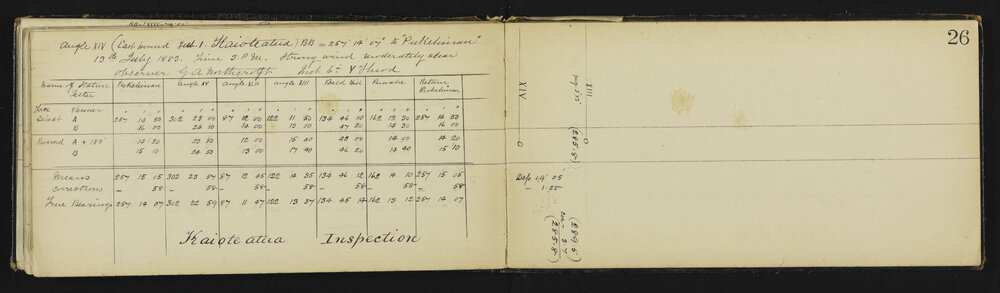 Angle XIV (East bound Sub. 1. Kaioteatua) BB = 257° 14' 07" to "Pukekiman"
13th July 1883. Time 3. P.M. Strong wind moderately clear
Observer G A Northcroft Inst 6in Y Theod
Name of Station Pukekiman angle XV angle XVII angle XIII Bald Hill Return
Face Vernier
Direct A 257 14 50 302 23 00 87 12 00 122 11 50 134 46 10 162 13 30 257 14 50
B 16 00 24 10 14 00 13 10 47 20 14 30 16 00
Reversed A + 180° 14 20 23 50 12 00 15 40 45 00 14 00 14 20
B 15 10 24 50 13 00 17 40 46 20 14 40 15 10
Means 257 15 05 302 23 57 87 12 45 122 14 35 134 46 12 162 14 10 257 15 05
Corrections – 58 – 58 – 58 – 58 – 58 – 58 – 58
True Bearings 257 14 07 302 22 59 87 11 47 122 13 37 134 45 14 162 13 12 257 14 07
Kaioteatua Inspection
26
XIV
XIII
0
0
(285.8)
Dep 09' 05"
– 1.28
(289.5)
3.7
(285.8)